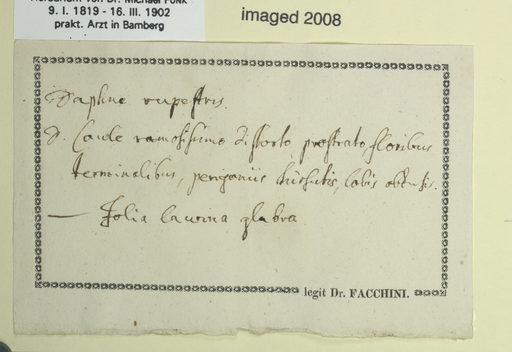 Herbarium von Dr. Michael Funk
9. I. 1819 - 16. III. 1902
prakt. Arzt in Bamberg
imaged 2008
Daphne rupestris.
D. Caule ramosissimo distorto, prostrato, floribus
terminalibus, perigoniis hirsutis, lobis obtusis.
— Folia laurina glabra
legit Dr. FACCHINI.